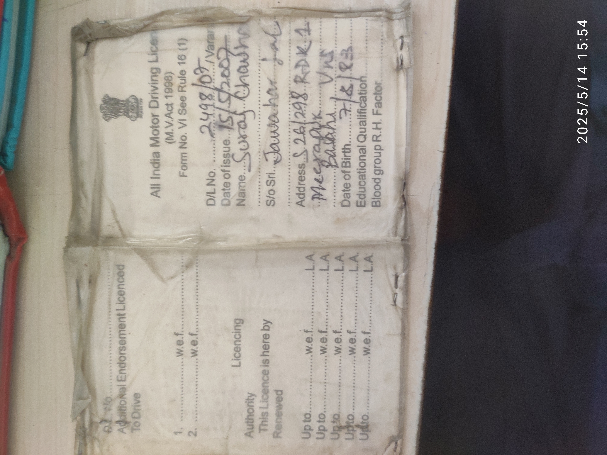 All India Motor Driving Licen
(M.V/Act 1996)
Form No. VI See Rule 16 (1)
D/LNo. 2498/07/Varan
Date of Issue 15/5/2007
Name Suraj Chauha
S/o Sri. Jawahar Lal
Address S 26/298 R.D.K-1
Meerapur
Basahi Vns
Date of Birth 7/8/83
Educational Qualification
Blood group R.H. Factor
Additional Endorsement Licenced
To Drive
1. w.e.f.
2. w.e.f.
Licencing
Authority
This Licence is here by
Renewed
Up to w.e.f. L.A.
Up to w.e.f. L.A.
Up to w.e.f. L.A.
Up to w.e.f. L.A.
Up to w.e.f. L.A.
2025/5/14 15:54